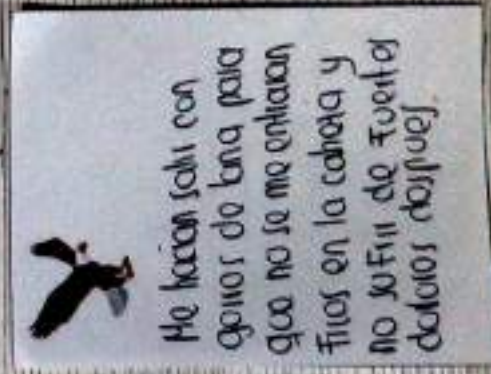 Me hacian salir con
gorros de lana para
que no se me entraran
Frios en la cabeza y
no sufrir de Fuertes
dolores despues.